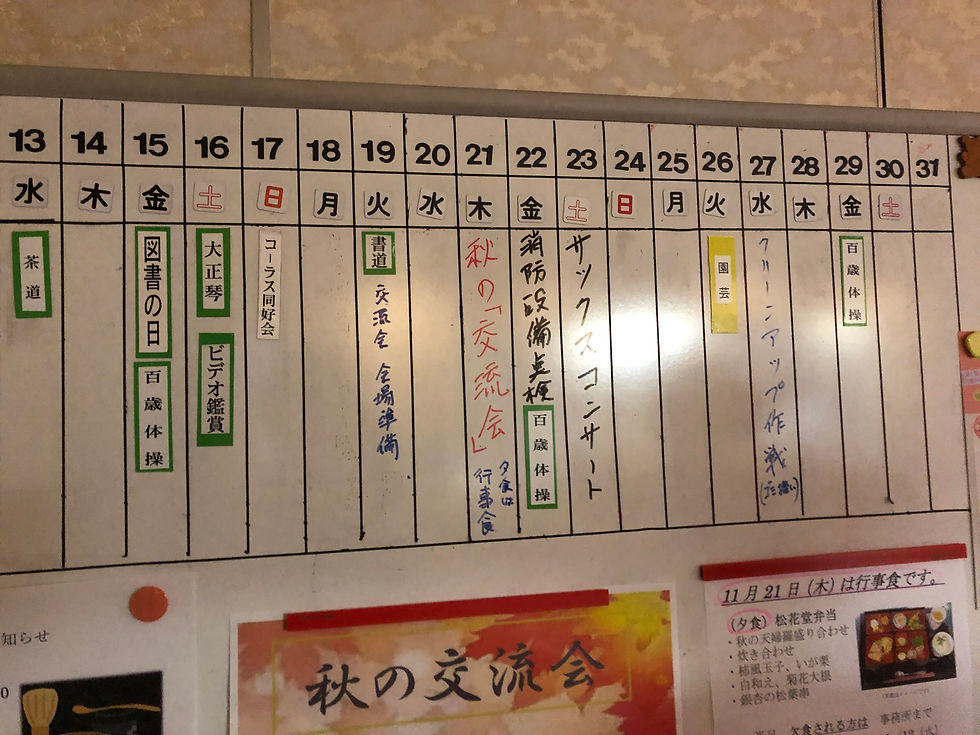 13 14 15 16 17 18 19 20 21 22 23 24 25 26 27 28 29 30 31
水 木 金 土 日 月 火 水 木 金 土 日 月 火 水 木 金 土
茶道
図書の日
百歳体操
大正琴
ビデオ鑑賞
コーラス同好会
書道
交流会 会場準備
秋の「交流会」
夕食は
行事食
消防設備点検
百歳体操
サックスコンサート
園芸
クリーンアップ作戦
(ゴミ拾い)
百歳体操
知らせ
秋の交流会
11月21日(木)は行事食です。
(夕食) 松花堂弁当
・秋の天婦羅盛り合わせ
・炊き合わせ
・柿風玉子、いが栗
・白和え、菊花大根
・銀杏の松葉串
欠食される方は 事務所まで